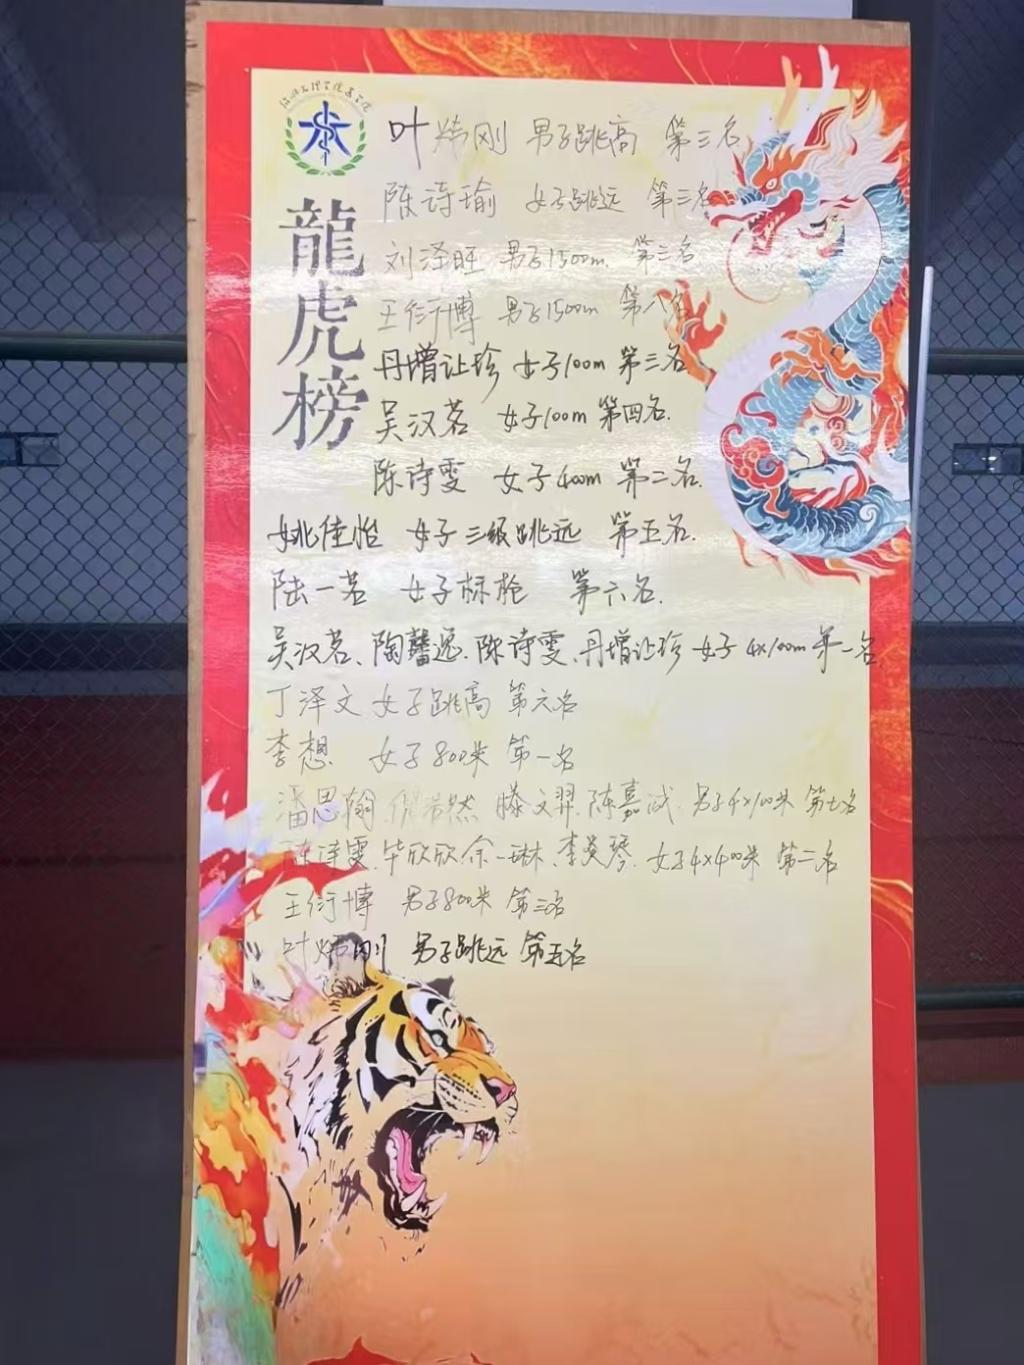 龍虎榜
叶炜刚 男子跳高 第三名
陈诗瑜 女子跳远 第三名
刘泽旺 男子1500m 第三名
王衍博 男子1500m 第八名
丹增让珍 女子100m 第三名
吴汉茗 女子100m 第四名.
陈诗雯 女子400m 第二名.
姚佳怡 女子三级跳远 第五名.
陆一若 女子标枪 第六名.
吴汉茗、陶馨逸.陈诗雯、丹增让珍 女子4x100m 第一名
丁泽文 女子跳高 第六名
李想 女子800米 第一名
潘思翰 滕文羿.陈嘉诚.男子4×100米 第七名
陈诗雯.毕欣欣.余一琳.李英琴.女子4×400米 第二名
王衍博 男子800米 第三名
叶炜刚 男子跳远 第五名